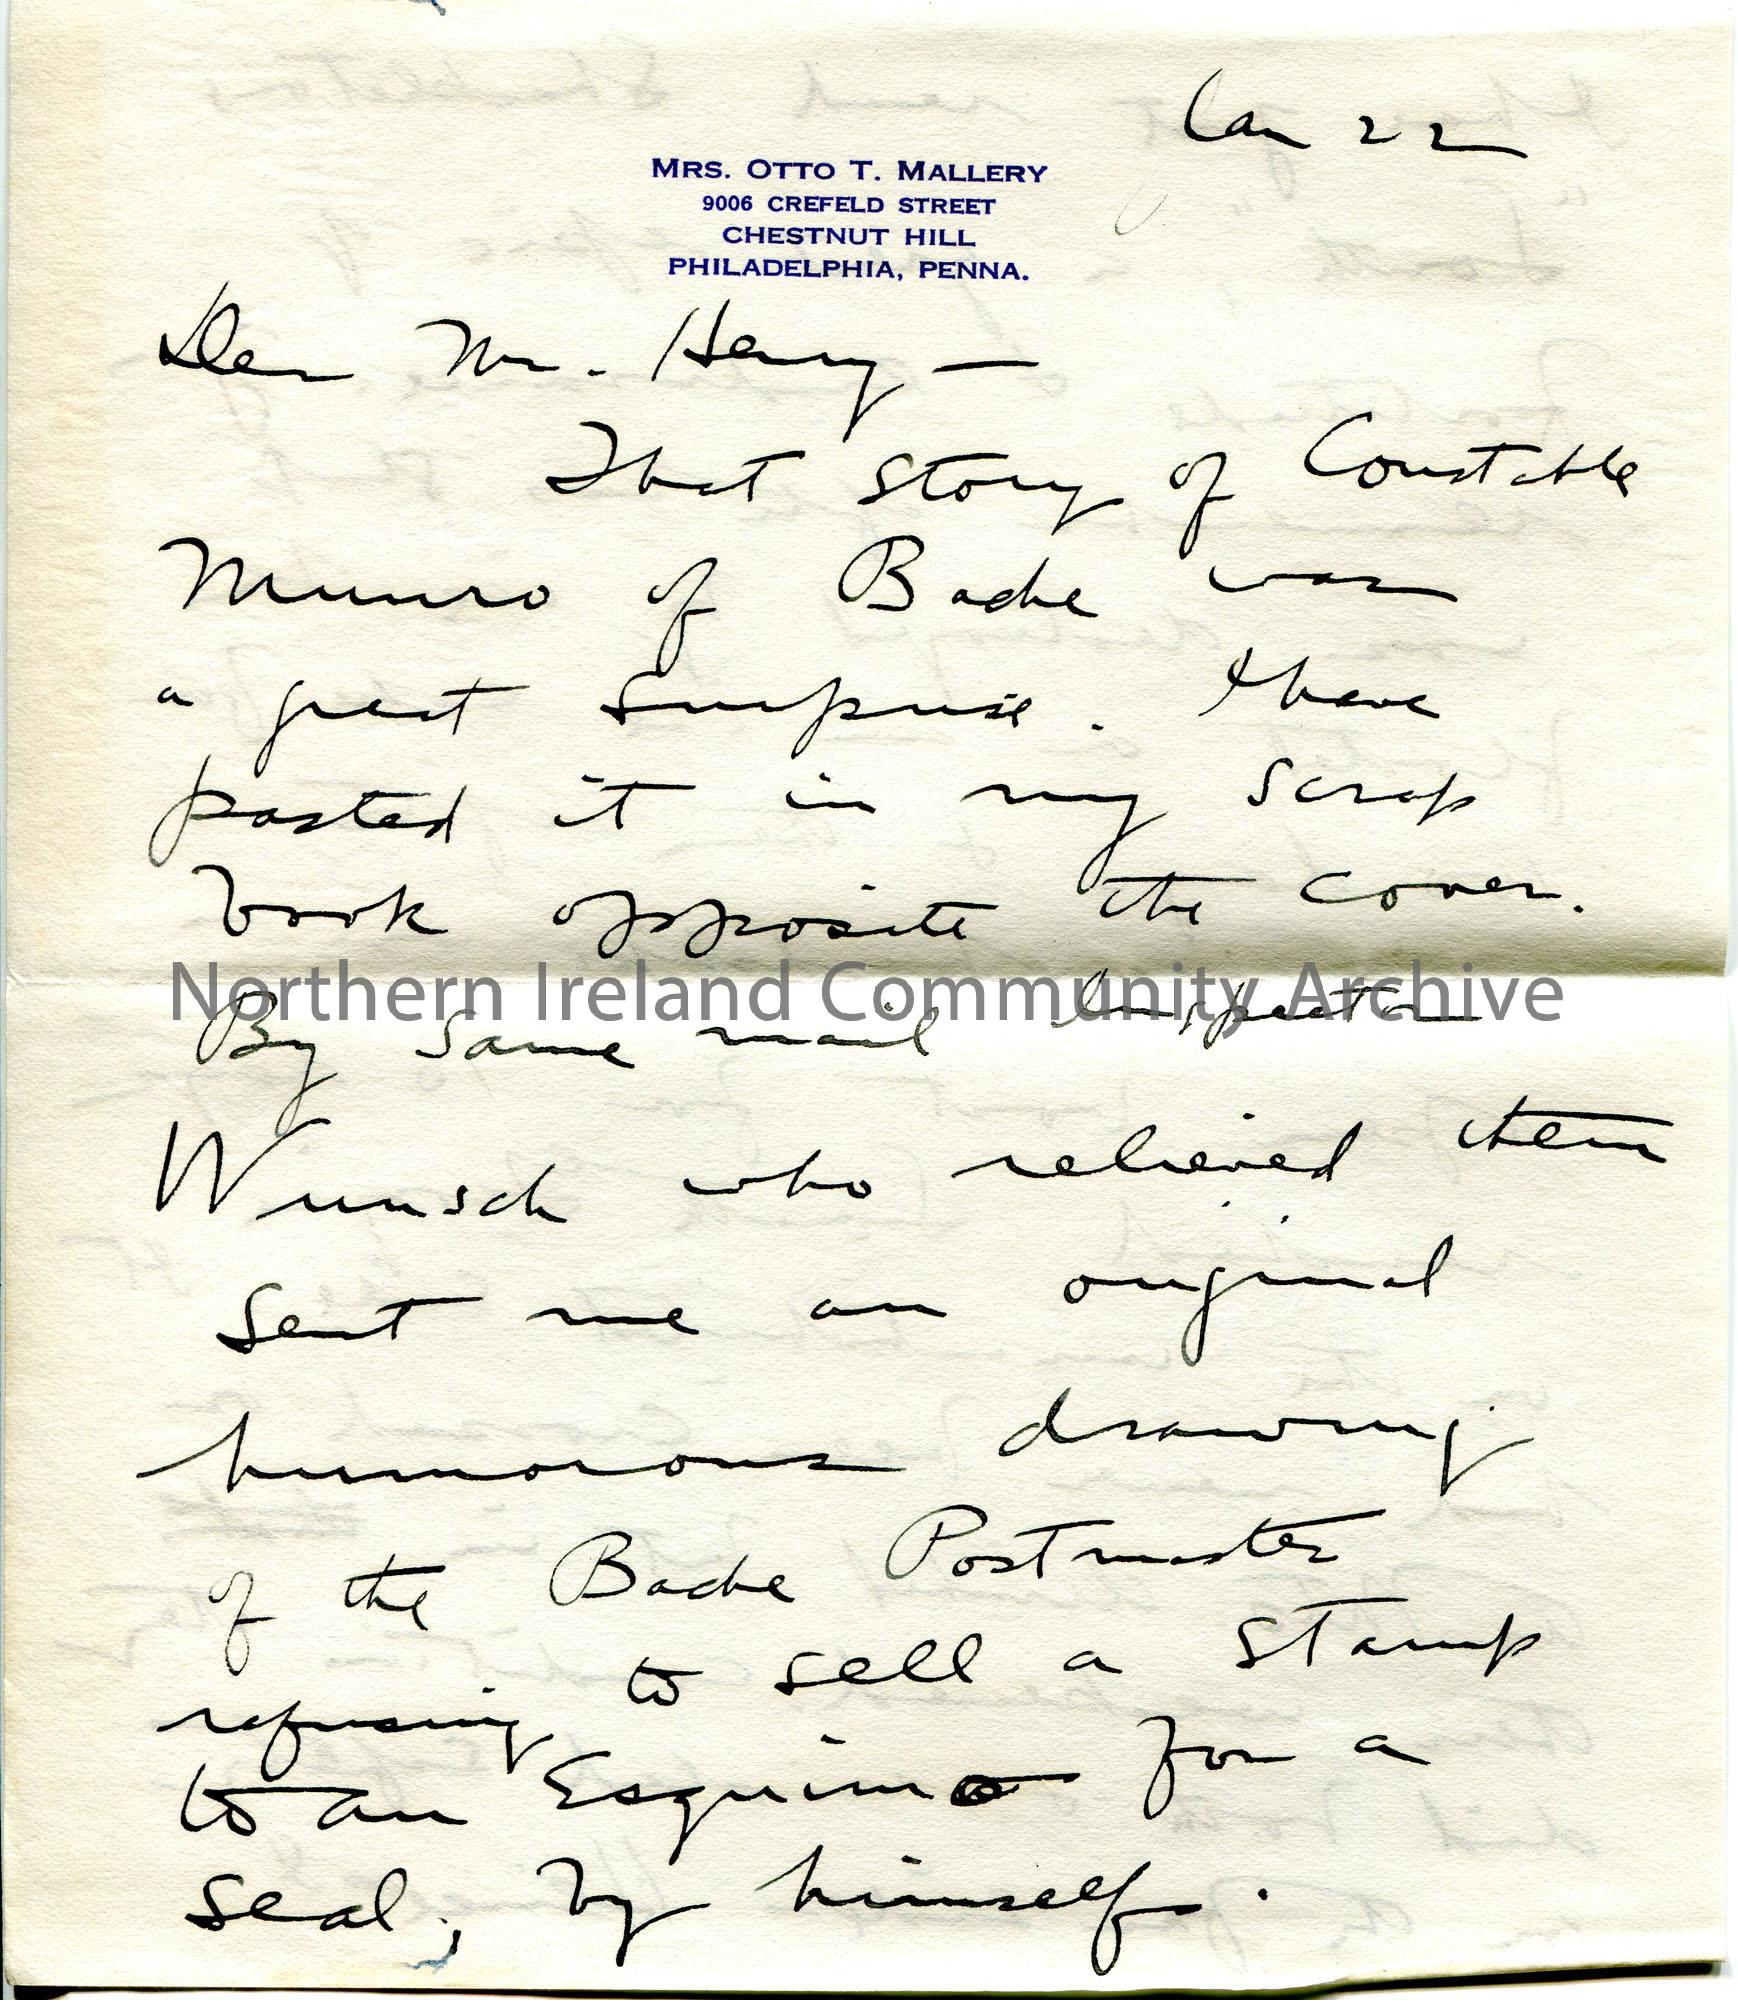 Jan 22
MRS. OTTO T. MALLERY
9006 CREFELD STREET
CHESTNUT HILL
PHILADELPHIA, PENNA.
Dear Mr. Henry —
That story of Constable
Munro of Bache was
a great surprise. I have
pasted it in my scrap
book opposite the cover.
Northern Ireland Community Archive
By same mail Inspector
Wunsch who relieved them
sent me an original
humorous drawing
of the Bache Postmaster
refusing to sell a stamp
to an Esquimo for a
seal, by himself.